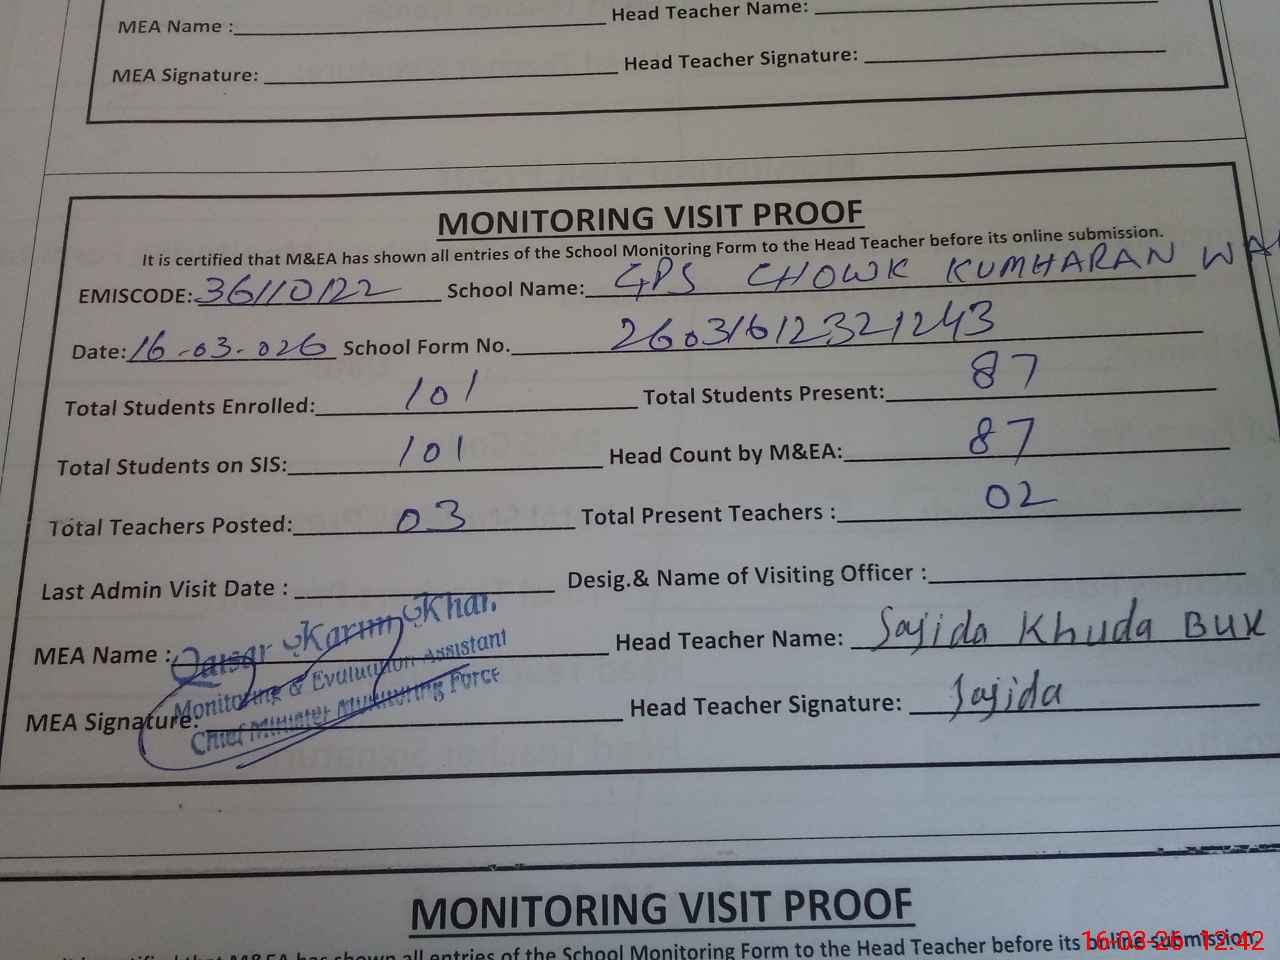 MEA Name : Head Teacher Name:
MEA Signature: Head Teacher Signature:
MONITORING VISIT PROOF
It is certified that M&EA has shown all entries of the School Monitoring Form to the Head Teacher before its online submission.
EMISCODE: 36110122 School Name: GPS CHOWK KUMHARAN WA
Date: 16-03-026 School Form No. 26031612321243
Total Students Enrolled: 101 Total Students Present: 87
Total Students on SIS: 101 Head Count by M&EA: 87
Total Teachers Posted: 03 Total Present Teachers : 02
Last Admin Visit Date : Desig.& Name of Visiting Officer :
MEA Name : Qaisar Karim Khan Head Teacher Name: Sajida Khuda Bux
Monitoring & Evaluation Assistant
MEA Signature: Chief Minister Monitoring Force Head Teacher Signature: Sajida
MONITORING VISIT PROOF
M&EA has shown all entries of the School Monitoring Form to the Head Teacher before its online submission.
16-03-26 12:42